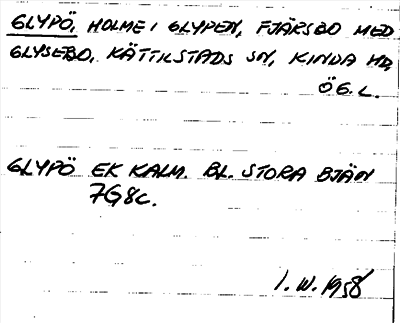 GLYPÖ, HOLME I GLYPEN, FJÄRSBO MED
GLYSEBO, KÄTTILSTADS SN, KINDA HD,
ÖG.L.
GLYPÖ EK KALM. BL. STORA BJÄN
7G8c.
1. IV. 1958